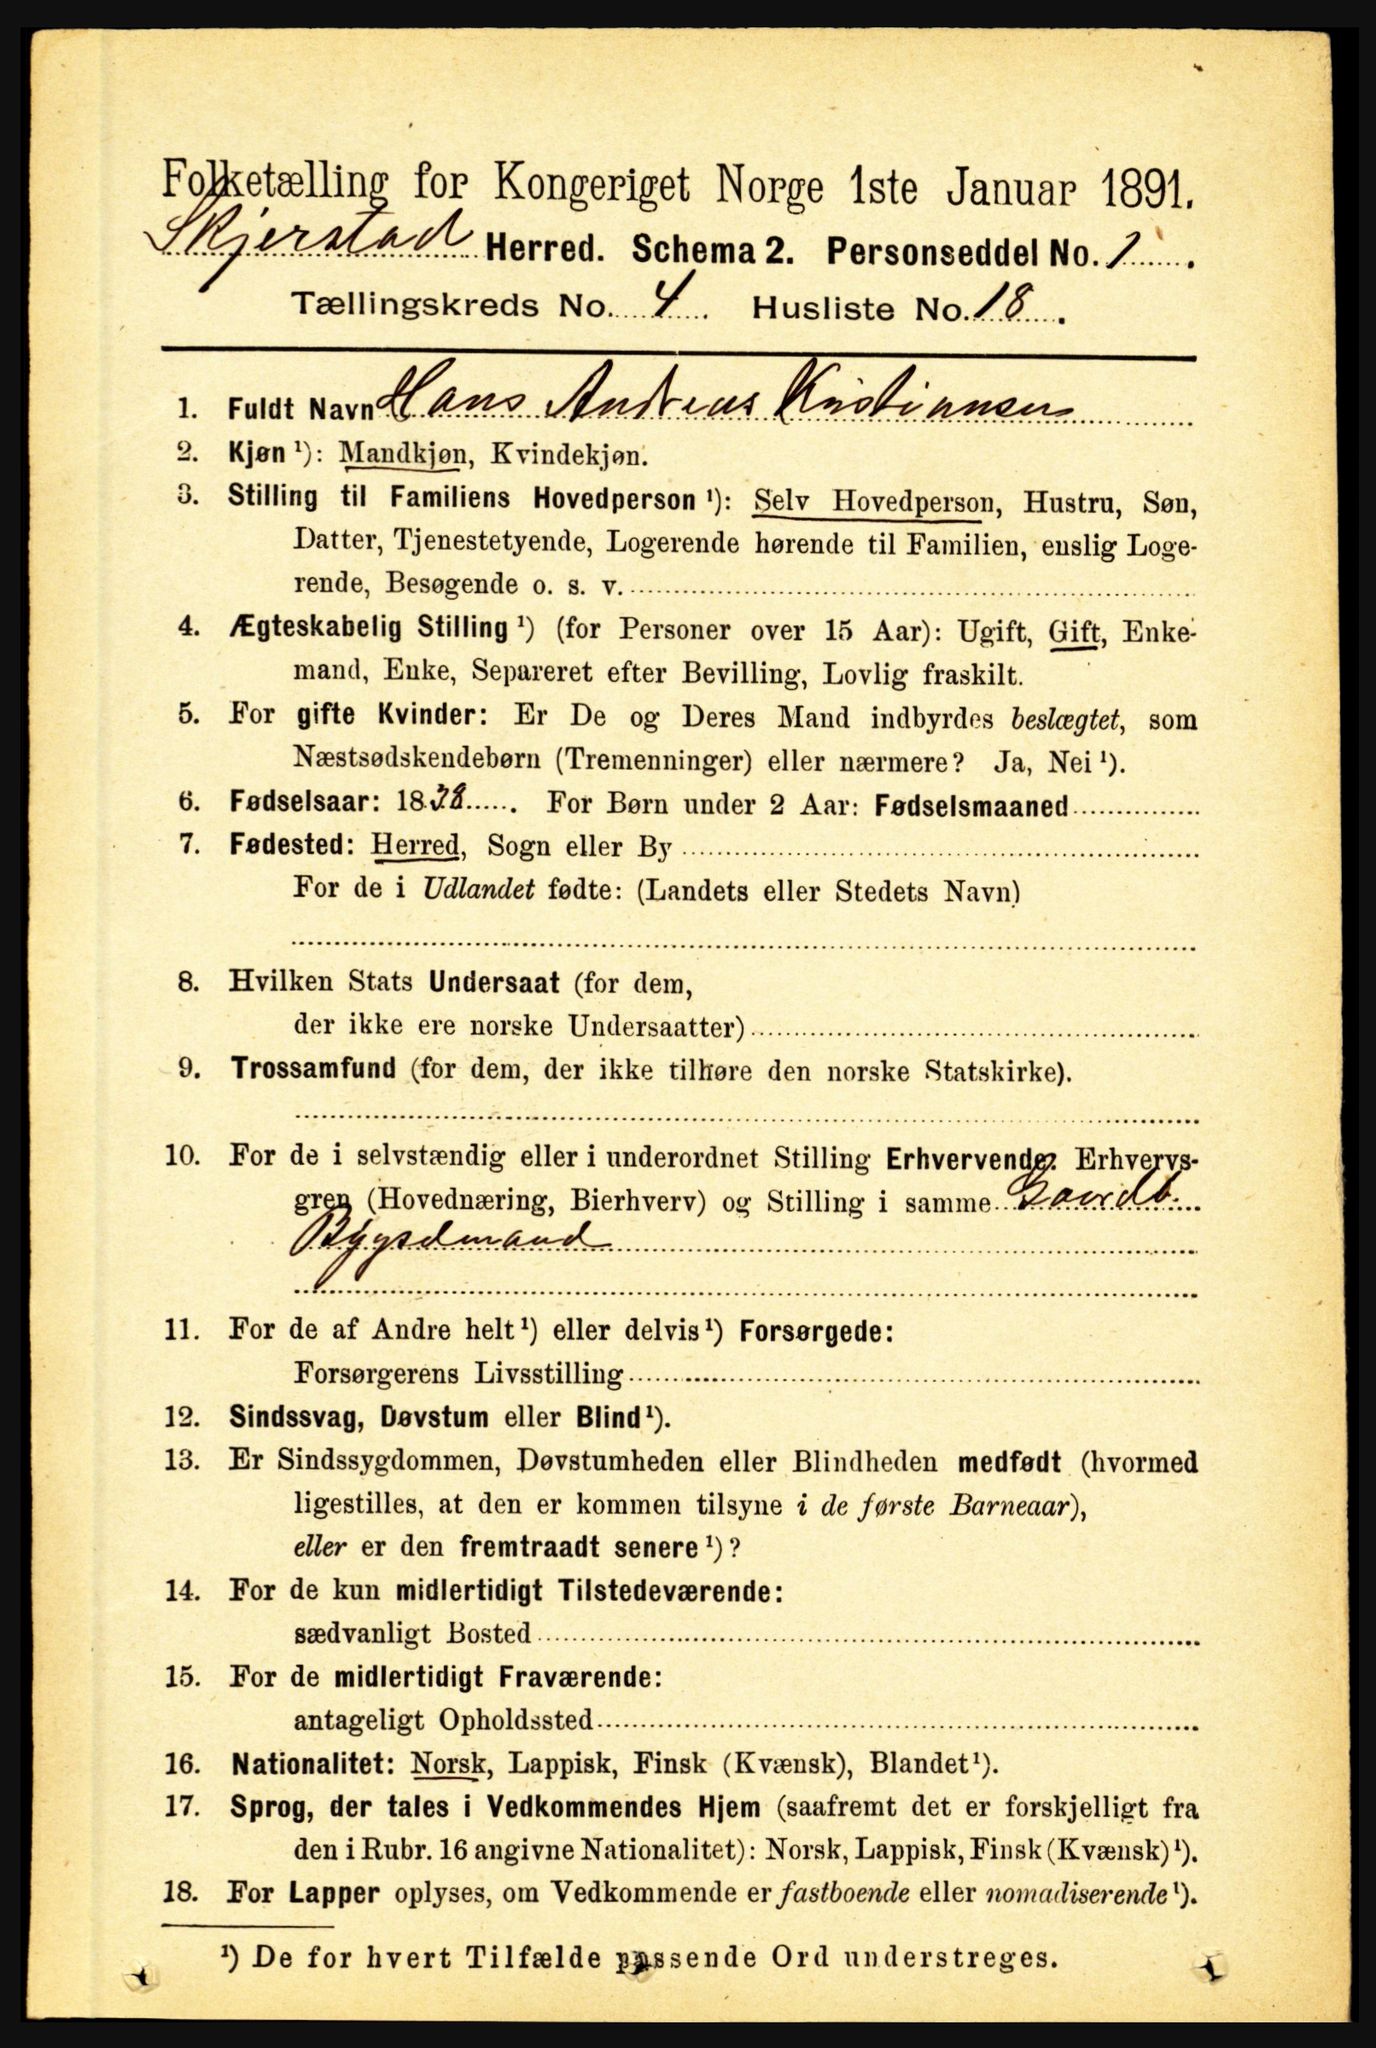 Folketælling for Kongeriget Norge 1ste Januar 1891.
Skjerstad Herred. Schema 2. Personseddel No. 1.
Tællingskreds No. 4. Husliste No. 18.
1. Fuldt Navn Hans Andreas Kristiansen
2. Kjøn ¹): Mandkjøn, Kvindekjøn.
3. Stilling til Familiens Hovedperson ¹): Selv Hovedperson, Hustru, Søn,
Datter, Tjenestetyende, Logerende hørende til Familien, enslig Loge-
rende, Besøgende o. s. v.
4. Ægteskabelig Stilling ¹) (for Personer over 15 Aar): Ugift, Gift, Enke-
mand, Enke, Separeret efter Bevilling, Lovlig fraskilt.
5. For gifte Kvinder: Er De og Deres Mand indbyrdes beslægtet, som
Næstsødskendebørn (Tremenninger) eller nærmere? Ja, Nei ¹).
6. Fødselsaar: 1838. For Børn under 2 Aar: Fødselsmaaned
7. Fødested: Herred, Sogn eller By
For de i Udlandet fødte: (Landets eller Stedets Navn)
8. Hvilken Stats Undersaat (for dem,
der ikke ere norske Undersaatter)
9. Trossamfund (for dem, der ikke tilhøre den norske Statskirke).
10. For de i selvstændig eller i underordnet Stilling Erhvervende: Erhvervs-
gren (Hovednæring, Bierhverv) og Stilling i samme Gaardb.
Bygselmand
11. For de af Andre helt ¹) eller delvis ¹) Forsørgede:
Forsørgerens Livsstilling
12. Sindssvag, Døvstum eller Blind ¹).
13. Er Sindssygdommen, Døvstumheden eller Blindheden medfødt (hvormed
ligestilles, at den er kommen tilsyne i de første Barneaar),
eller er den fremtraadt senere ¹)?
14. For de kun midlertidigt Tilstedeværende:
sædvanligt Bosted
15. For de midlertidigt Fraværende:
antageligt Opholdssted
16. Nationalitet: Norsk, Lappisk, Finsk (Kvænsk), Blandet ¹).
17. Sprog, der tales i Vedkommendes Hjem (saafremt det er forskjelligt fra
den i Rubr. 16 angivne Nationalitet): Norsk, Lappisk, Finsk (Kvænsk) ¹).
18. For Lapper oplyses, om Vedkommende er fastboende eller nomadiserende ¹).
¹) De for hvert Tilfælde passende Ord understreges.